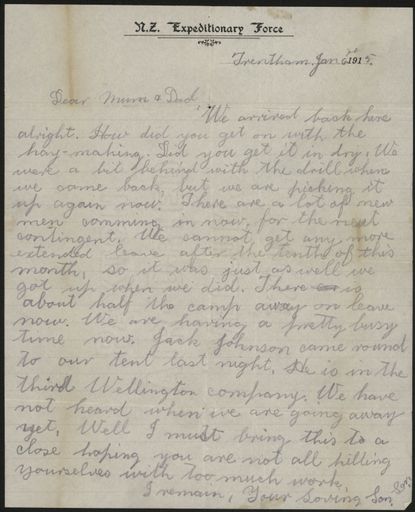 N.Z. Expeditionary Force
Trentham, Jan 6th 1915.
Dear Mum & Dad
We arrived back here
alright. How did you get on with the
hay-making. Did you get it in dry. We
were a bit behind with the drill when
we came back, but we are picking it
up again now. There are a lot of new
men comming in now, for the next
contingent. We cannot get any more
extended leave after the tenth of this
month, so it was just as well we
got up when we did. There is
about half the camp away on leave
now. We are having a pretty busy
time now. Jack Johnson came round
to our tent last night, He is in the
third Wellington company. We have
not heard when we are going away
yet, Well I must bring this to a
close hoping you are not all killing
yourselves with too much work
I remain, Your Loving Son,